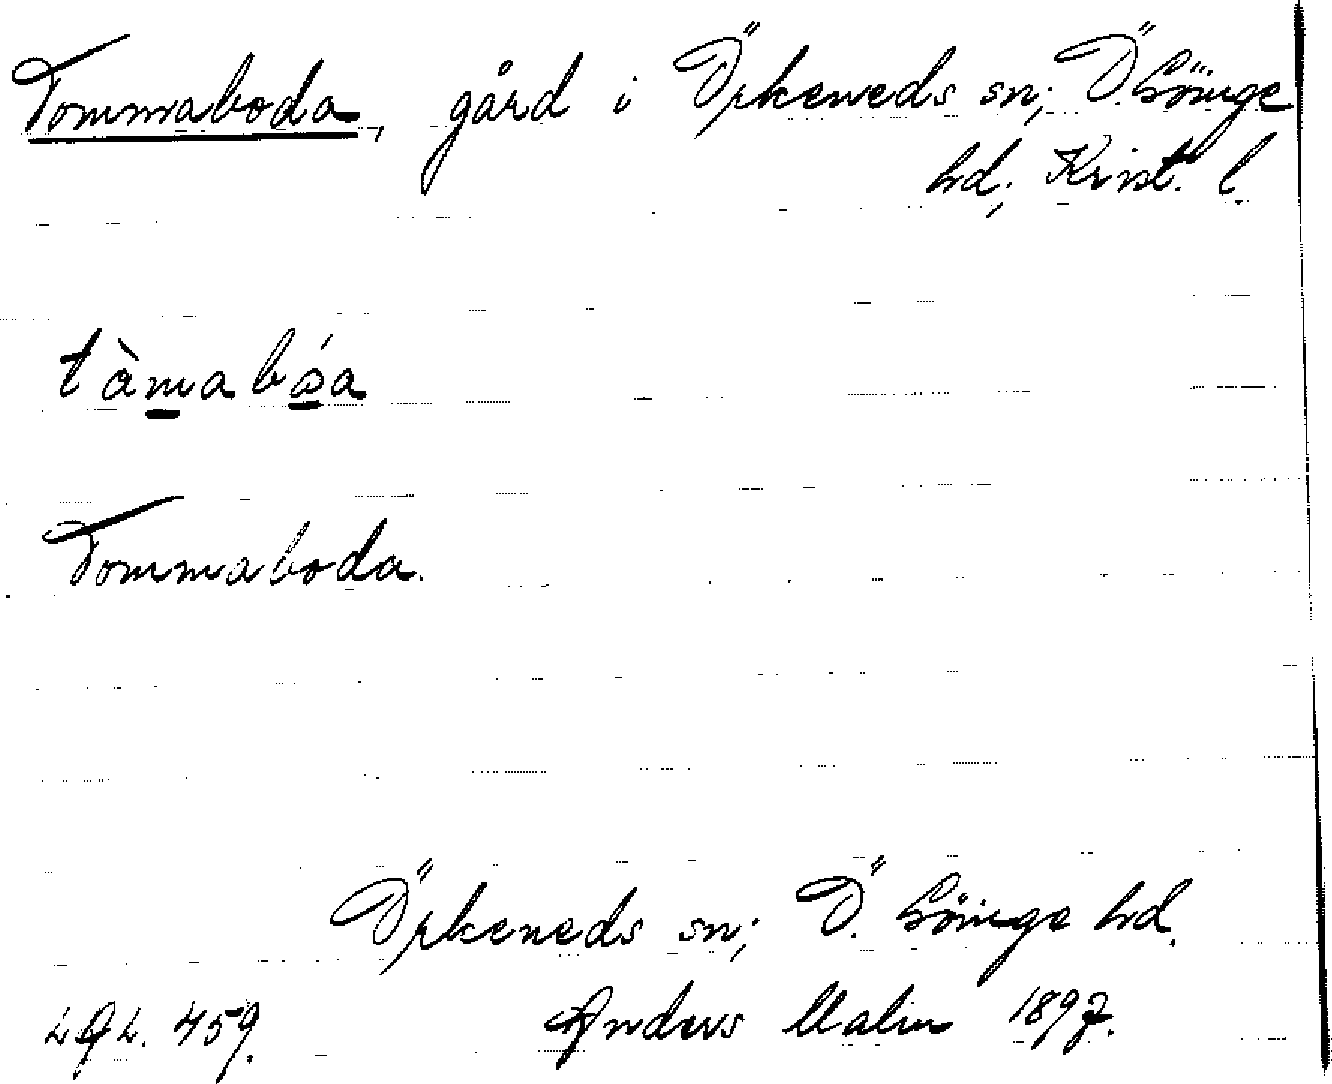 Tommaboda, gård i Örkeneds sn; Ö. Göinge
hd; Krist. l.
tàmabǿa
Tommaboda.
Örkeneds sn; Ö. Göinge hd.
LAL. 459. Anders Malm 1897.